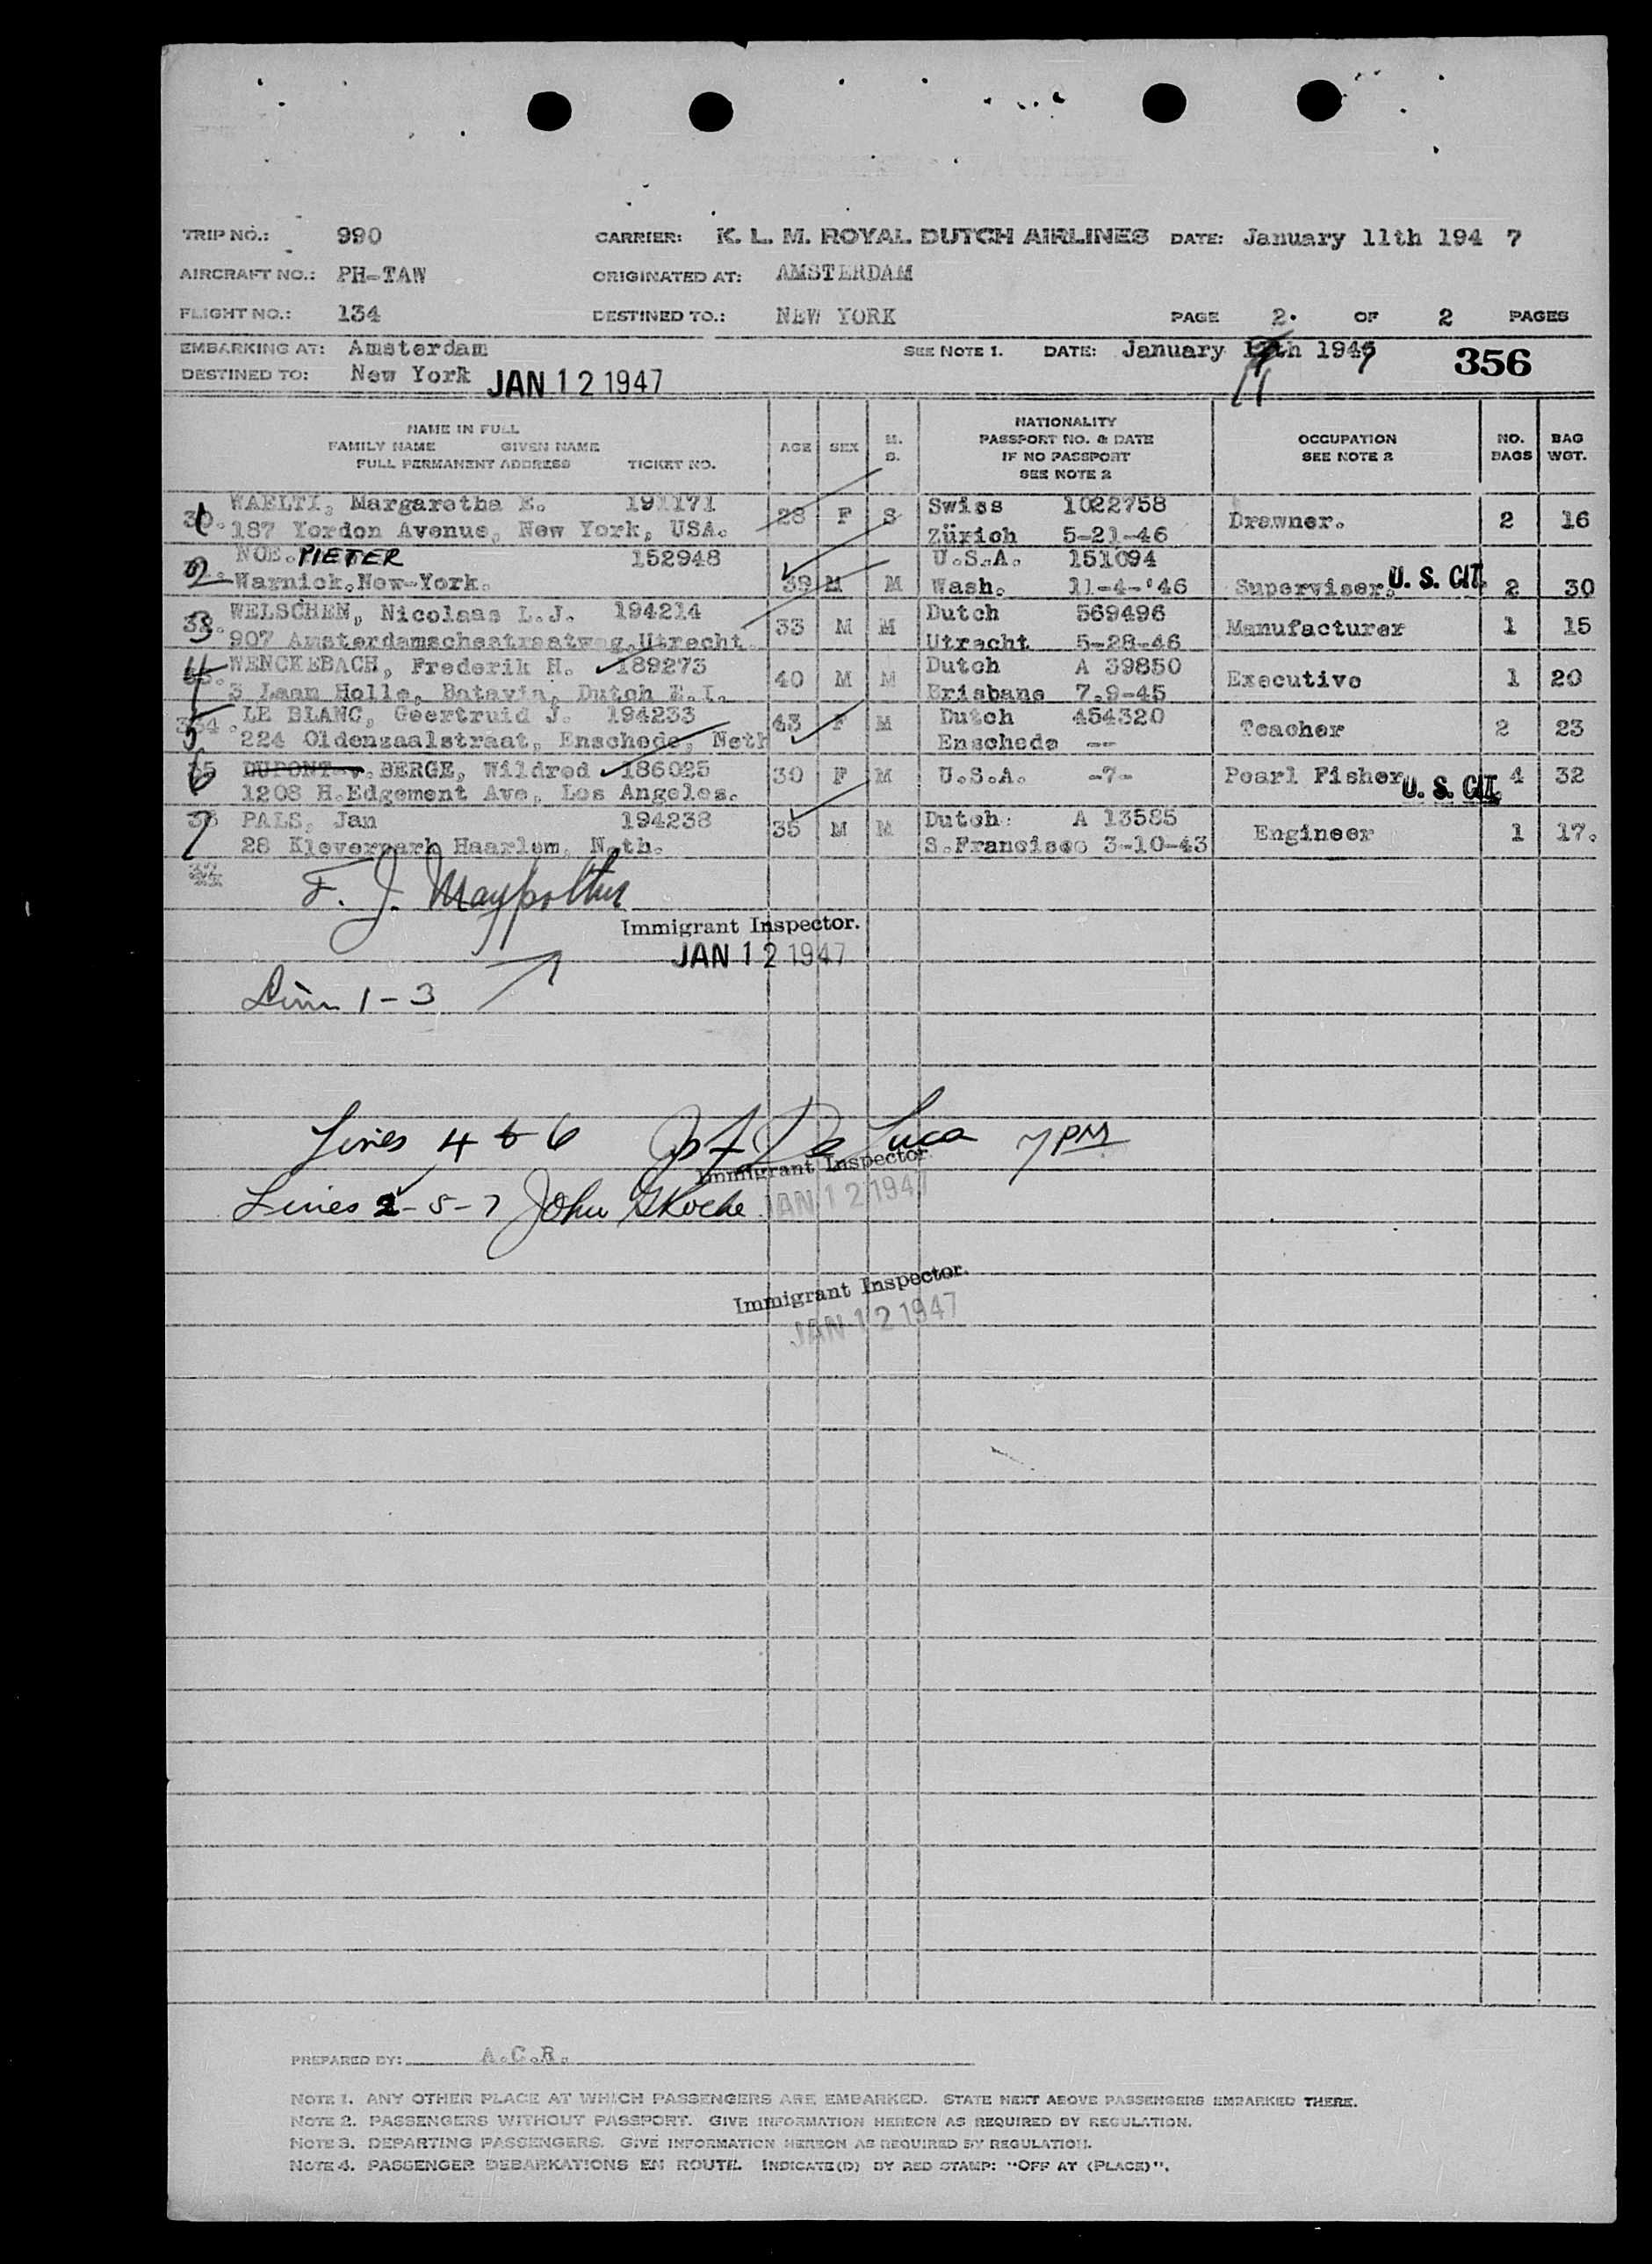 TRIP NO.: 990 CARRIER: K. L. M. ROYAL DUTCH AIRLINES DATE: January 11th 194 7
AIRCRAFT NO.: PH-TAW ORIGINATED AT: AMSTERDAM
FLIGHT NO.: 134 DESTINED TO.: NEW YORK PAGE 2. OF 2 PAGES
EMBARKING AT: Amsterdam SEE NOTE 1. DATE: January 11th 1947 356
DESTINED TO: New York JAN 12 1947
NAME IN FULL
FAMILY NAME GIVEN NAME
FULL PERMANENT ADDRESS TICKET NO.
AGE SEX M. S.
NATIONALITY
PASSPORT NO. & DATE
IF NO PASSPORT
SEE NOTE 2
OCCUPATION
SEE NOTE 2
NO. BAGS
BAG WGT.
1 WAELTI, Margaretha E. 191171 28 F S Swiss 1022758 Drawner. 2 16
187 Yordon Avenue, New York, USA. Zürich 5-21-46
2 NOE. PIETER 152948 39 M M U.S.A. 151094 Superviser. U. S. CIT. 2 30
Warnick.New-York. Wash. 11-4-'46
3 WELSCHEN, Nicolaas L.J. 194214 33 M M Dutch 569496 Manufacturer 1 15
907 Amsterdamschestraatweg,Utrecht. Utrecht 5-28-46
4 WENCKEBACH, Frederik H. 189273 40 M M Dutch A 39850 Executive 1 20
3 Laan Holle, Batavia, Dutch E.I. Brisbane 7.9-45
5 LE BLANC, Geertruid J. 194233 43 F M Dutch 454320 Teacher 2 23
224 Oldenzaalstraat, Enschede, Neth Enschede --
6 DUPONT-v.BERGE, Wildred 186025 30 F M U.S.A. -7- Pearl Fisher U. S. CIT. 4 32
1208 H.Edgement Ave, Los Angeles.
7 PALS, Jan 194238 35 M M Dutch: A 13585 Engineer 1 17.
28 Kleverpark Haarlem, Neth. S.Francisco 3-10-43
F. J.
Immigrant Inspector.
JAN 12 1947
1-3
Lines 4 & 6 De Luca 7 PM
Immigrant Inspector.
JAN 12 1947
Lines 2-5-7 John
Immigrant Inspector.
JAN 12 1947
PREPARED BY: A.C.R.
NOTE 1. ANY OTHER PLACE AT WHICH PASSENGERS ARE EMBARKED. STATE NEXT ABOVE PASSENGERS EMBARKED THERE.
NOTE 2. PASSENGERS WITHOUT PASSPORT. GIVE INFORMATION HEREON AS REQUIRED BY REGULATION.
NOTE 3. DEPARTING PASSENGERS. GIVE INFORMATION HEREON AS REQUIRED BY REGULATION.
NOTE 4. PASSENGER DEBARKATIONS EN ROUTE. INDICATE(D) BY RED STAMP: "OFF AT (PLACE)".